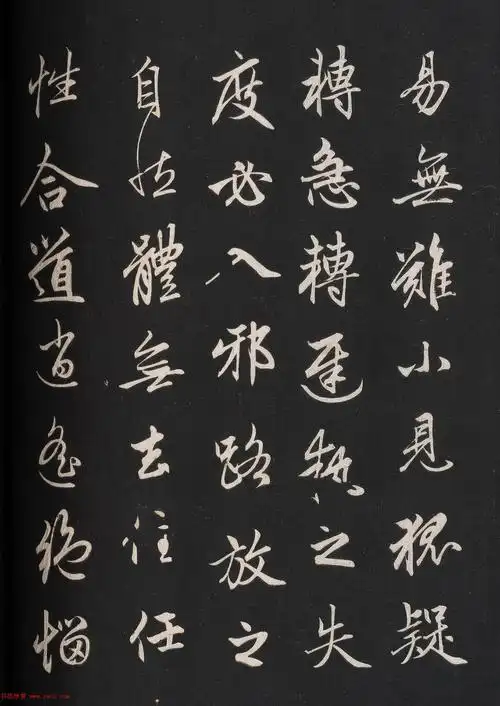 易無難小見狐疑
轉急轉遲執之失
度必入邪路放之
自然體無去住任
性合道逍遙絕惱